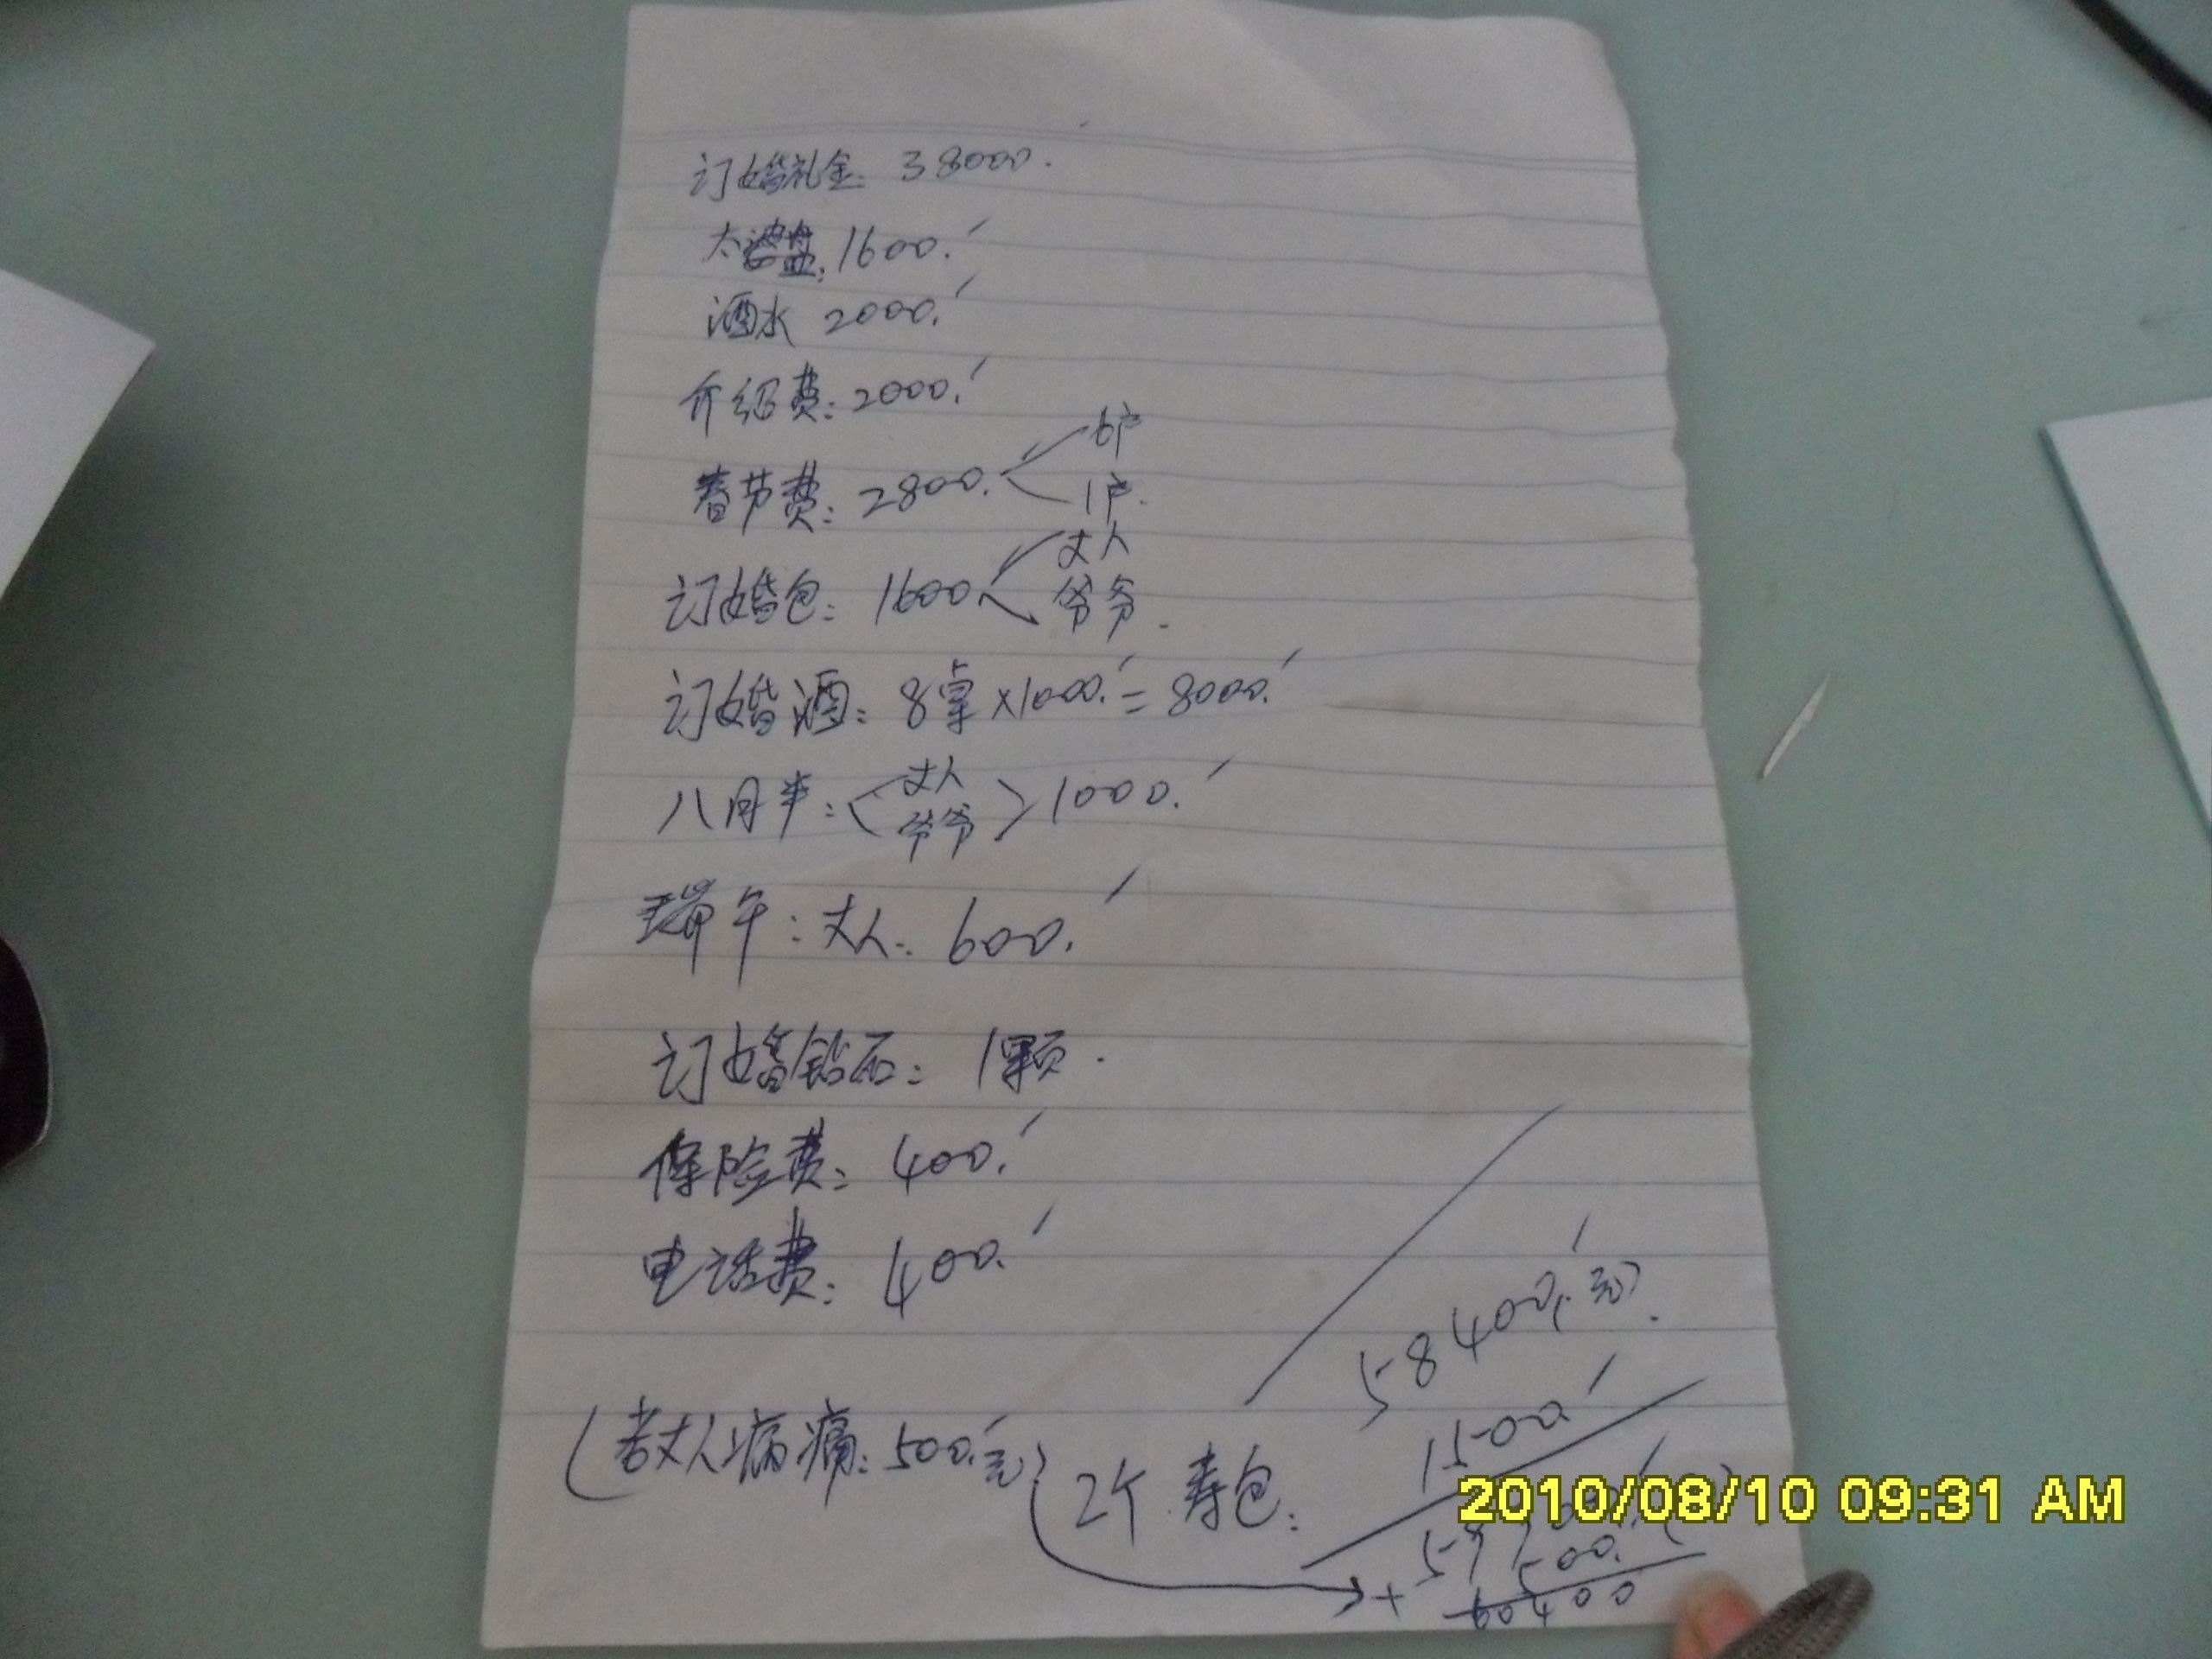 订婚礼金: 38000.
太婆盘: 1600.
酒水 2000.
介绍费: 2000.
春节费: 2800. 6户
1户.
订婚包: 1600 丈人
爷爷.
订婚酒: 8桌×1000.=8000.
八月半: 丈人
爷爷 1000.
端午: 丈人: 600.
订婚钻石: 1颗.
保险费: 400.
电话费: 400.
58400.(元).
(老丈人病痛: 500.元)
2个寿包: 1500.
+ 500.
60400
2010/08/10 09:31 AM